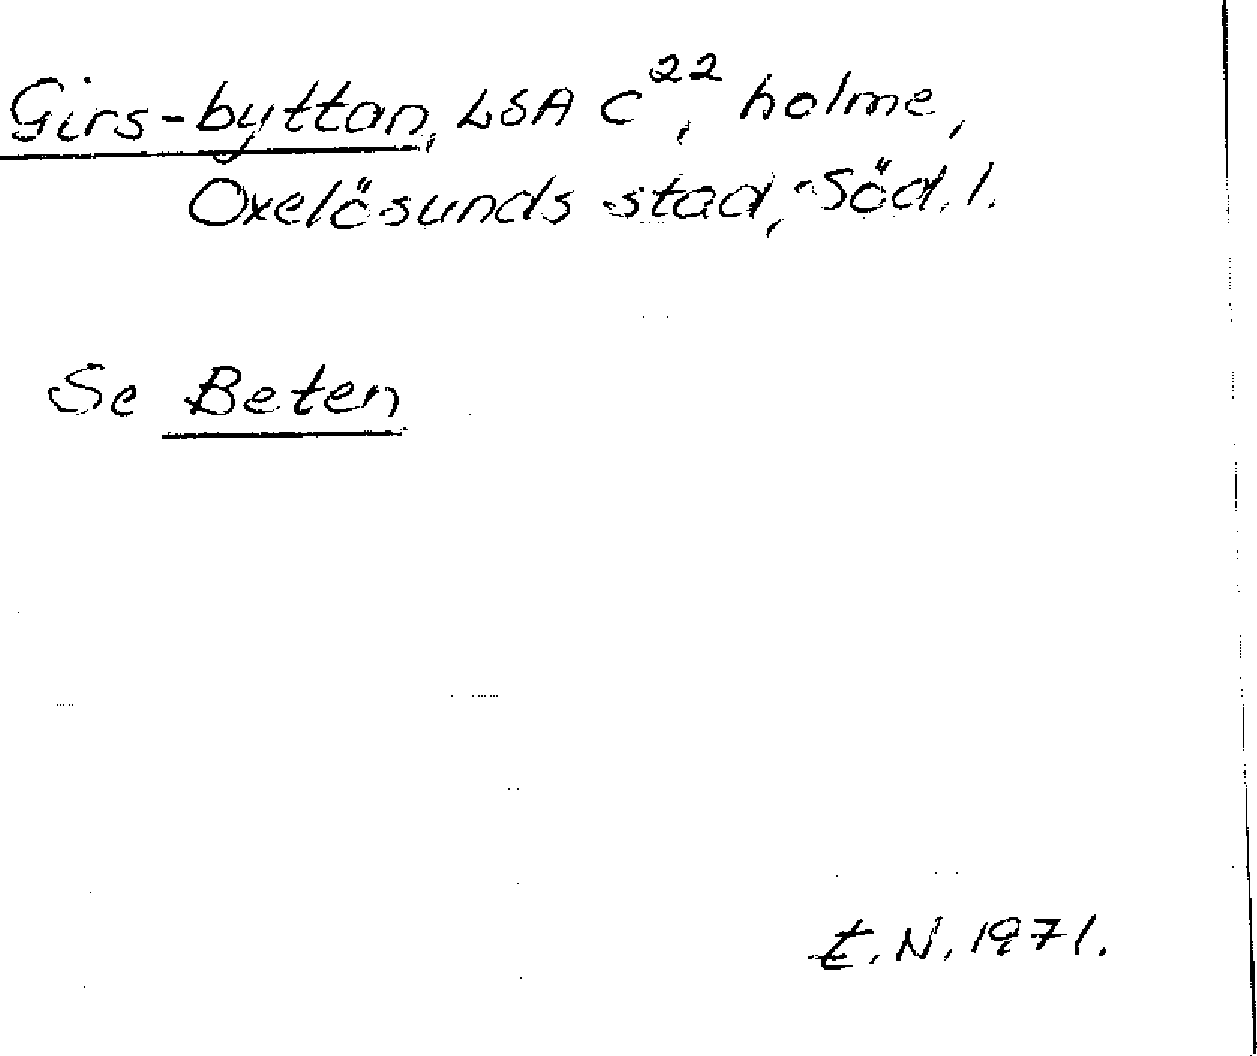 Girs-byttan, LSA C²², holme,
Oxelösunds stad, Söd.l.
Se Beten
E.N. 1971.